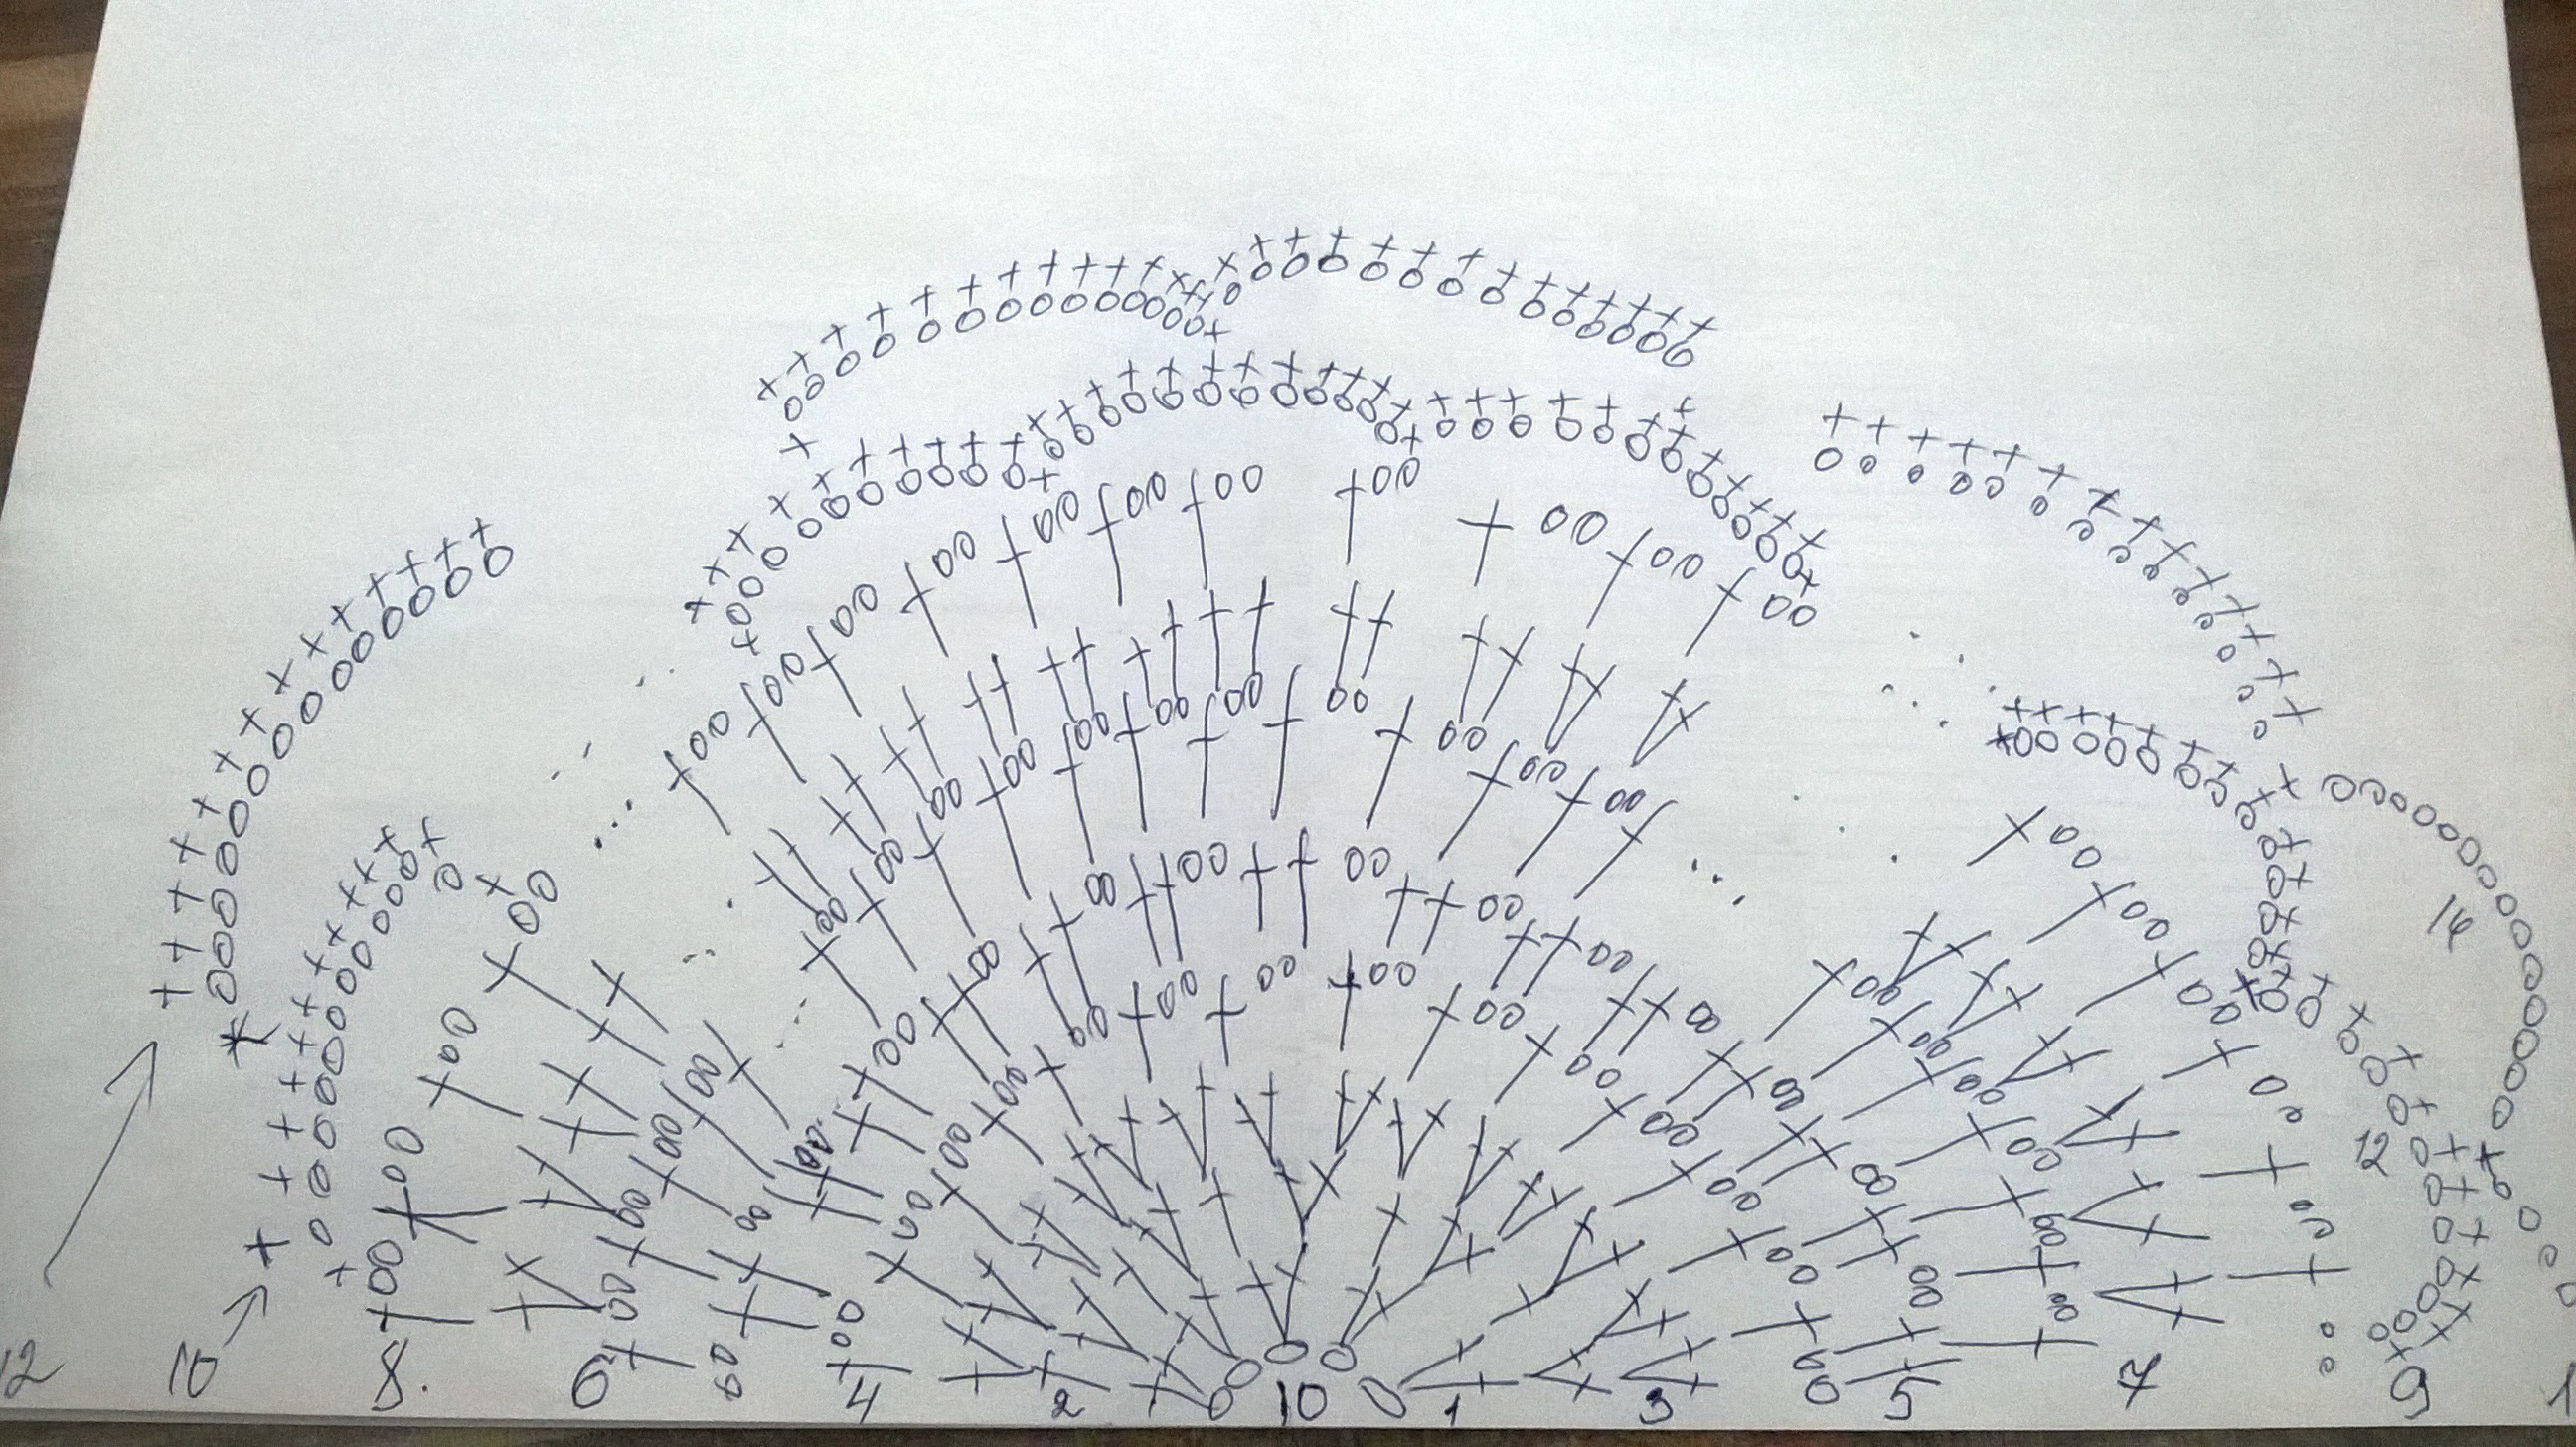 14
12
12 10 8. 6 4 2 10 1 3 5 7 9 1